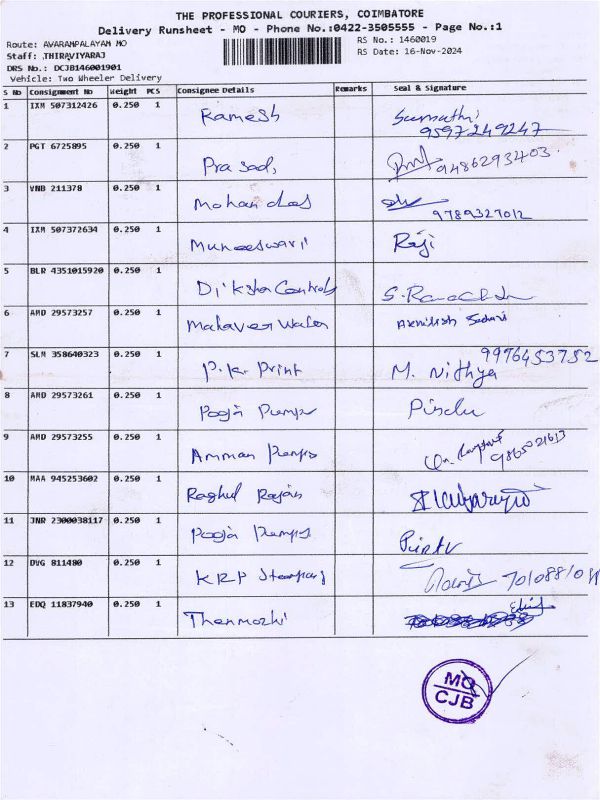 THE PROFESSIONAL COURIERS, COIMBATORE
Delivery Runsheet - MO - Phone No.:0422-3505555 - Page No.:1
Route: AVARAMPALAYAM MO
RS No.: 1460019
Staff: THIRAVIYARAJ
RS Date: 16-Nov-2024
DRS No.: DCJB146001901
Vehicle: Two Wheeler Delivery
S No Consignment No Weight PCS Consignee Details Remarks Seal & Signature
1 IXM 507312426 0.250 1 Ramesh Sumathi
9597249247
2 PGT 6725895 0.250 1 Prasad, 9486293403
3 VNB 211378 0.250 1 Mohandas
9789327012
4 IXM 507372634 0.250 1 Muneeswari Raji
5 BLR 4351015920 0.250 1 Diksha Controls
6 AMD 29573257 0.250 1 Mahaveer Water
7 SLM 358640323 0.250 1 P.K. Print M. Nithya 9976453752
8 AMD 29573261 0.250 1 Pooja Pumps
9 AMD 29573255 0.250 1 Amman Pumps 9865021613
10 MAA 945253602 0.250 1 Raghul Rajan
11 JNR 2300038117 0.250 1 Pooja Pumps
12 DVG 811480 0.250 1 KRP
13 EDQ 11837940 0.250 1 Thenmozhi
MO
CJB